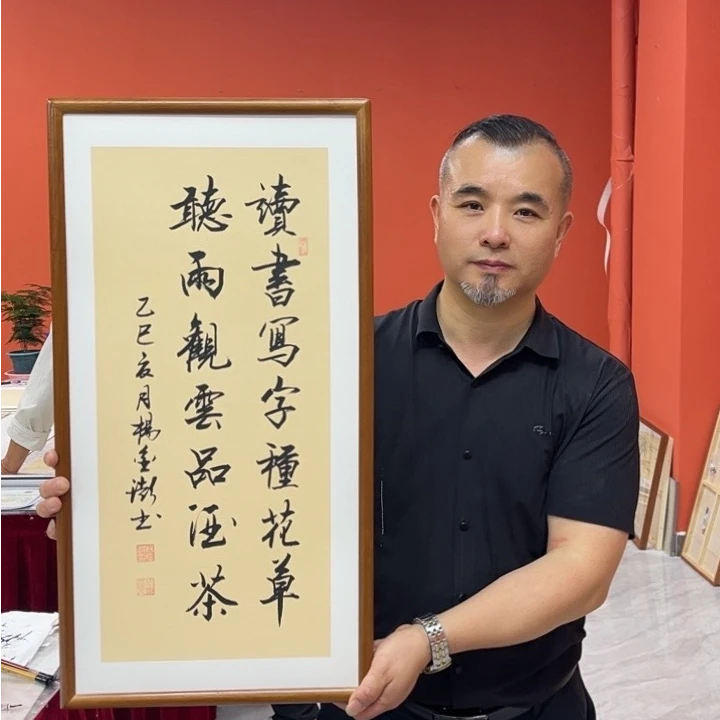 讀書寫字種花草
聽雨觀雲品酒茶
乙巳亥月楊金澍书